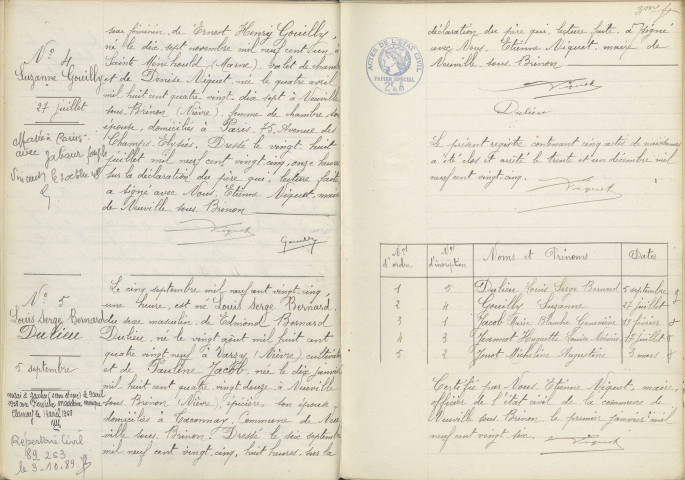 N° 4
Suzanne Gouilly
27 juillet
Mariée à Paris
avec
le 3 octobre
sexe féminin, de Ernest Henry Gouilly,
né le dix sept novembre mil neuf cent un à
Sainte Menehould (Marne), valet de chambre
et de Denise Niquet, née le quatre avril
mil huit cent quatre vingt dix sept à Neuville
sous Brinon (Nièvre), femme de chambre son
épouse, domiciliés à Paris, 75, Avenue des
Champs Elysées. Dressé le vingt huit
juillet mil neuf cent vingt-cinq, onze heures
sur la déclaration du père qui, lecture faite
a signé avec Nous, Etienne Niquet, maire
de Neuville sous Brinon
Niquet
Gouilly
N° 5
Louis Serge Bernard
Dulieu
5 septembre
Clamecy le 7 avril
Répertoire Civil
89 253
le 3-10-89
Le cinq septembre mil neuf cent vingt-cinq
une heure, est né Louis Serge Bernard
du sexe masculin, de Edmond Bernard
Dulieu, né le vingt août mil huit cent
quatre vingt neuf à Varzy (Nièvre) cultivateur
et de Pauline Jacob, née le dix janvier
mil huit cent quatre vingt douze à Neuville
sous Brinon (Nièvre), épicière, son épouse,
domiciliés à Taconnay, Commune de Neu-
ville sous Brinon. Dressé le six septembre
mil neuf cent vingt-cinq, huit heures, sur la
déclaration du père qui, lecture faite, a signé
avec Nous, Etienne Niquet, maire de
Neuville sous Brinon.
ACTES DE L'ETAT CIVIL
PAPIER SPECIAL
Niquet
Dulieu
Le présent registre contenant cinq actes de naissances
a été clos et arrêté le trente et un décembre mil
neuf cent vingt-cinq.
Niquet
Nos d'ordre Nos d'inscription Noms et Prénoms Dates
1 5 Dulieu Louis Serge Bernard 5 septembre
2 4 Gouilly Suzanne 27 juillet
3 1 Jacob Marie Blanche Geneviève février
4 3 Jeannot Huguette Louise juillet
5 2 Micheline Augustine 3 mars
Certifié par Nous, Etienne Niquet, maire,
officier de l'état civil de la commune de
Neuville sous Brinon, le premier janvier mil
neuf cent vingt six.
Niquet